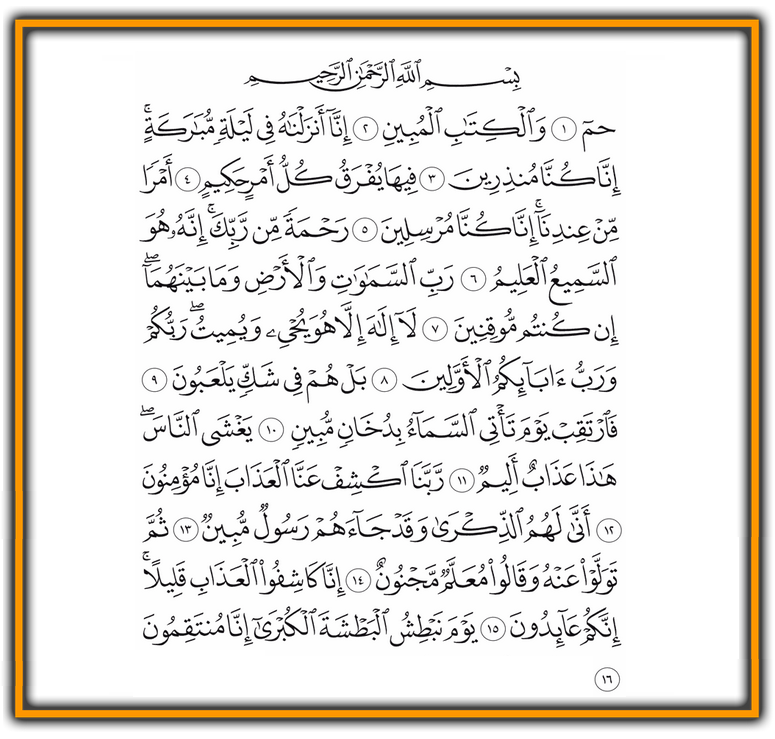 بِسْمِ ٱللَّهِ ٱلرَّحْمَٰنِ ٱلرَّحِيمِ
حمٓ ١ وَٱلْكِتَٰبِ ٱلْمُبِينِ ٢ إِنَّآ أَنزَلْنَٰهُ فِى لَيْلَةٍ مُّبَٰرَكَةٍ ۚ
إِنَّا كُنَّا مُنذِرِينَ ٣ فِيهَا يُفْرَقُ كُلُّ أَمْرٍ حَكِيمٍ ٤ أَمْرًا
مِّنْ عِندِنَآ ۚ إِنَّا كُنَّا مُرْسِلِينَ ٥ رَحْمَةً مِّن رَّبِّكَ ۚ إِنَّهُۥ هُوَ
ٱلسَّمِيعُ ٱلْعَلِيمُ ٦ رَبِّ ٱلسَّمَٰوَٰتِ وَٱلْأَرْضِ وَمَا بَيْنَهُمَآ ۖ
إِن كُنتُم مُّوقِنِينَ ٧ لَآ إِلَٰهَ إِلَّا هُوَ يُحْىِۦ وَيُمِيتُ ۖ رَبُّكُمْ
وَرَبُّ ءَابَآئِكُمُ ٱلْأَوَّلِينَ ٨ بَلْ هُمْ فِى شَكٍّ يَلْعَبُونَ ٩
فَٱرْتَقِبْ يَوْمَ تَأْتِى ٱلسَّمَآءُ بِدُخَانٍ مُّبِينٍ ١٠ يَغْشَى ٱلنَّاسَ ۖ
هَٰذَا عَذَابٌ أَلِيمٌ ١١ رَّبَّنَا ٱكْشِفْ عَنَّا ٱلْعَذَابَ إِنَّا مُؤْمِنُونَ
١٢ أَنَّىٰ لَهُمُ ٱلذِّكْرَىٰ وَقَدْ جَآءَهُمْ رَسُولٌ مُّبِينٌ ١٣ ثُمَّ
تَوَلَّوْا۟ عَنْهُ وَقَالُوا۟ مُعَلَّمٌ مَّجْنُونٌ ١٤ إِنَّا كَاشِفُوا۟ ٱلْعَذَابِ قَلِيلًا ۚ
إِنَّكُمْ عَآئِدُونَ ١٥ يَوْمَ نَبْطِشُ ٱلْبَطْشَةَ ٱلْكُبْرَىٰٓ إِنَّا مُنتَقِمُونَ
١٦